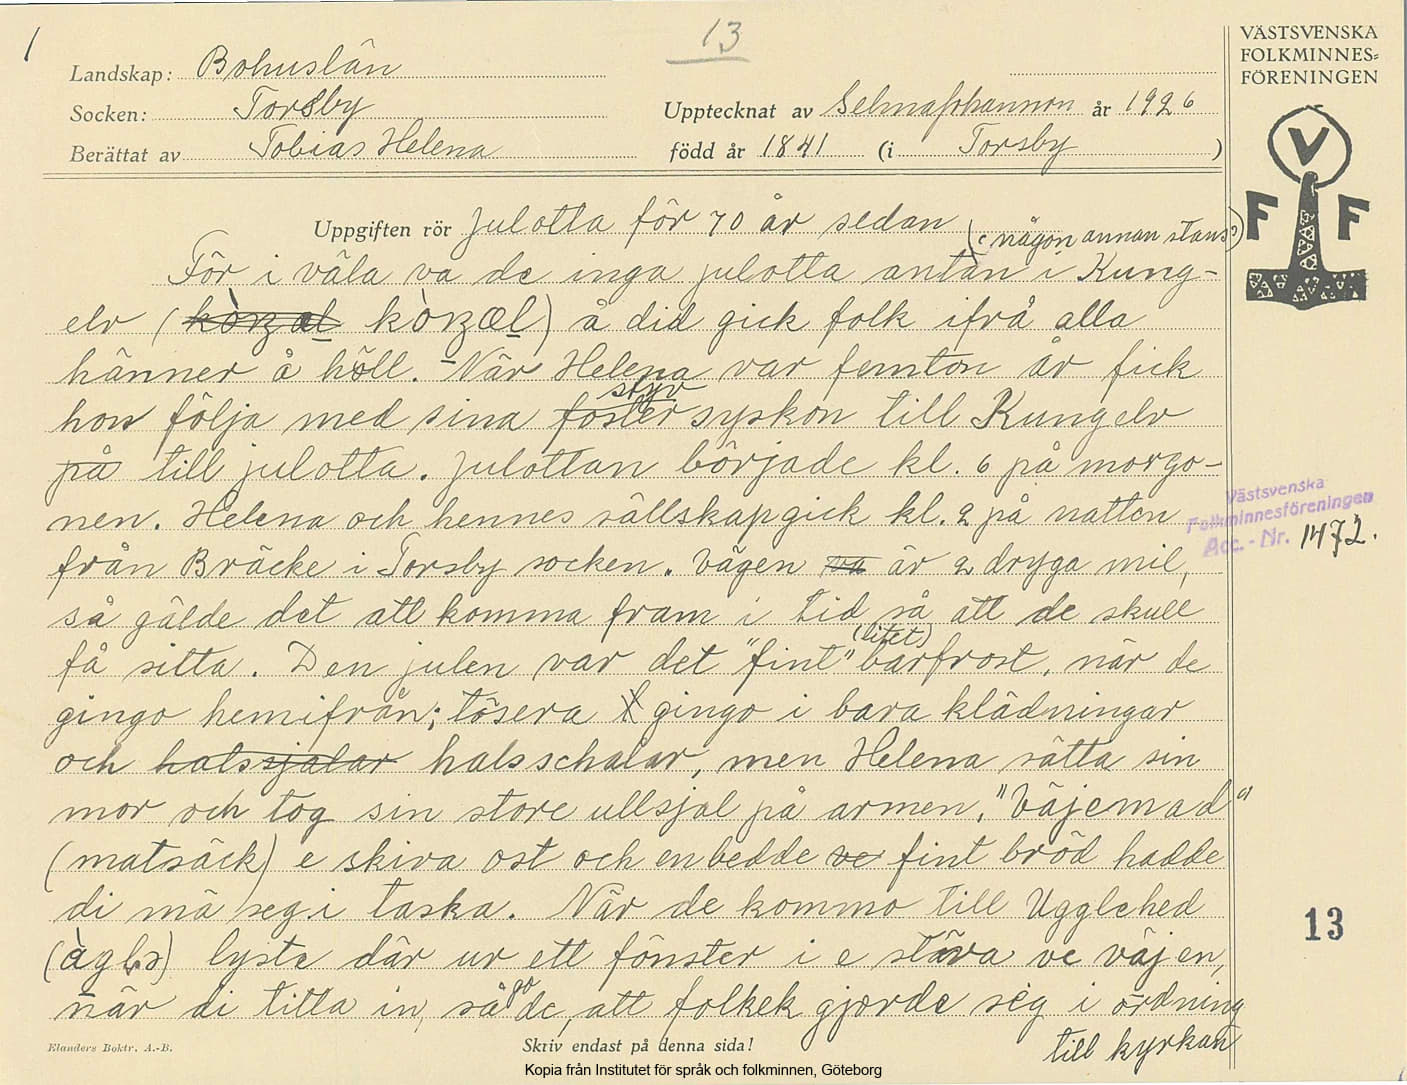 1
13
VÄSTSVENSKA
FOLKMINNES-
FÖRENINGEN
V
F F
Landskap: Bohuslän
Socken: Torsby
Upptecknat av Selma Johansson år 1926
Berättat av Tobias Helena
född år 1841 (i Torsby)
Uppgiften rör Julotta för 70 år sedan
(någon annan stans)
För i väla va de inga julotta antan i Kung-
elv (kòrzæl) å did gick folk ifrå alla
hänner å höll. När Helena var femton år fick
styv
hon följa med sina foster syskon till Kungelv
på till julotta. Julottan började kl. 6 på morgo-
nen. Helena och hennes sällskap gick kl. 2 på natten
från Bräcke i Torsby socken. Vägen va är 2 dryga mil,
så gälde det att komma fram i tid så att de skull
(litet)
få sitta. Den julen var det "fint" barfrost, när de
gingo hemifrån; tösera gingo i bara klädningar
och halssjalar halsschalar, men Helena sätta sin
mor och tog sin store ullsjal på armen. "Väjemad"
(matsäck) e skiva ost och en bedde ve fint bröd hadde
di mä seg i taska. När de kommo till Ugglehed
lyste där ur ett fönster i e stäva ve väjen,
när di titta in, så de, att folkek gjorde seg i ordning
till kyrkan
Västsvenska
Folkminnesföreningen
Acc.-Nr. 1472.
13
Elanders Boktr. A.-B.
Skriv endast på denna sida!
Kopia från Institutet för språk och folkminnen, Göteborg